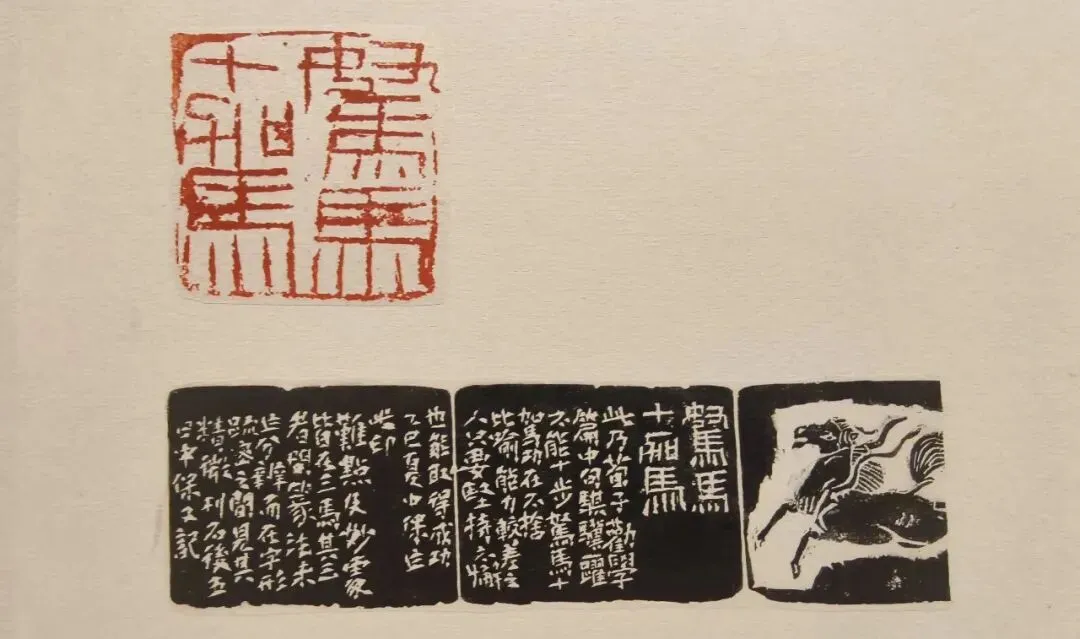 駑馬
十駕
駑馬
十駕
此乃荀子勸學
篇中句騏驥躍
不能十步駑馬十
駕功在不捨
比喻能力較差之
人只要堅持不懈
也能取得成功
乙巳夏中保作
此印
難點及妙處
皆在三馬其三
者關篆法未
作分辨而在字形
疏密之間見其
精微刊石後五
日中保又記